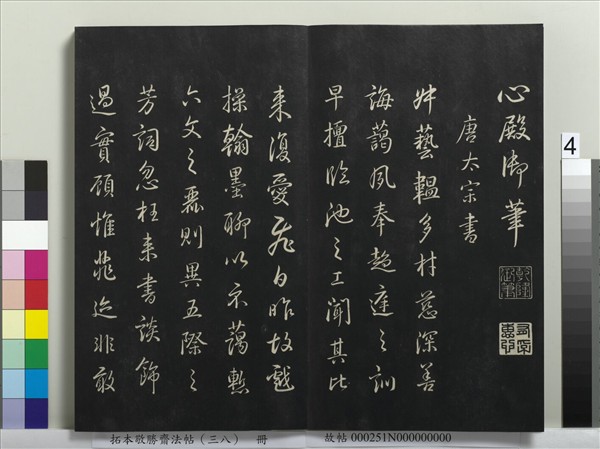 心殿御筆
唐太宗書
叔藝韞多材慈深善
誨藹風奉趨庭之訓
早擅臨池之工聞其比
來復愛飛白昨故戲
操翰墨聊以示藹慙
六文之麗則異五際之
芳詞忽枉來書談飾
過實顧惟菲迹非敢
4
拓本敬勝齋法帖（三八） 冊 故帖 000251N000000000